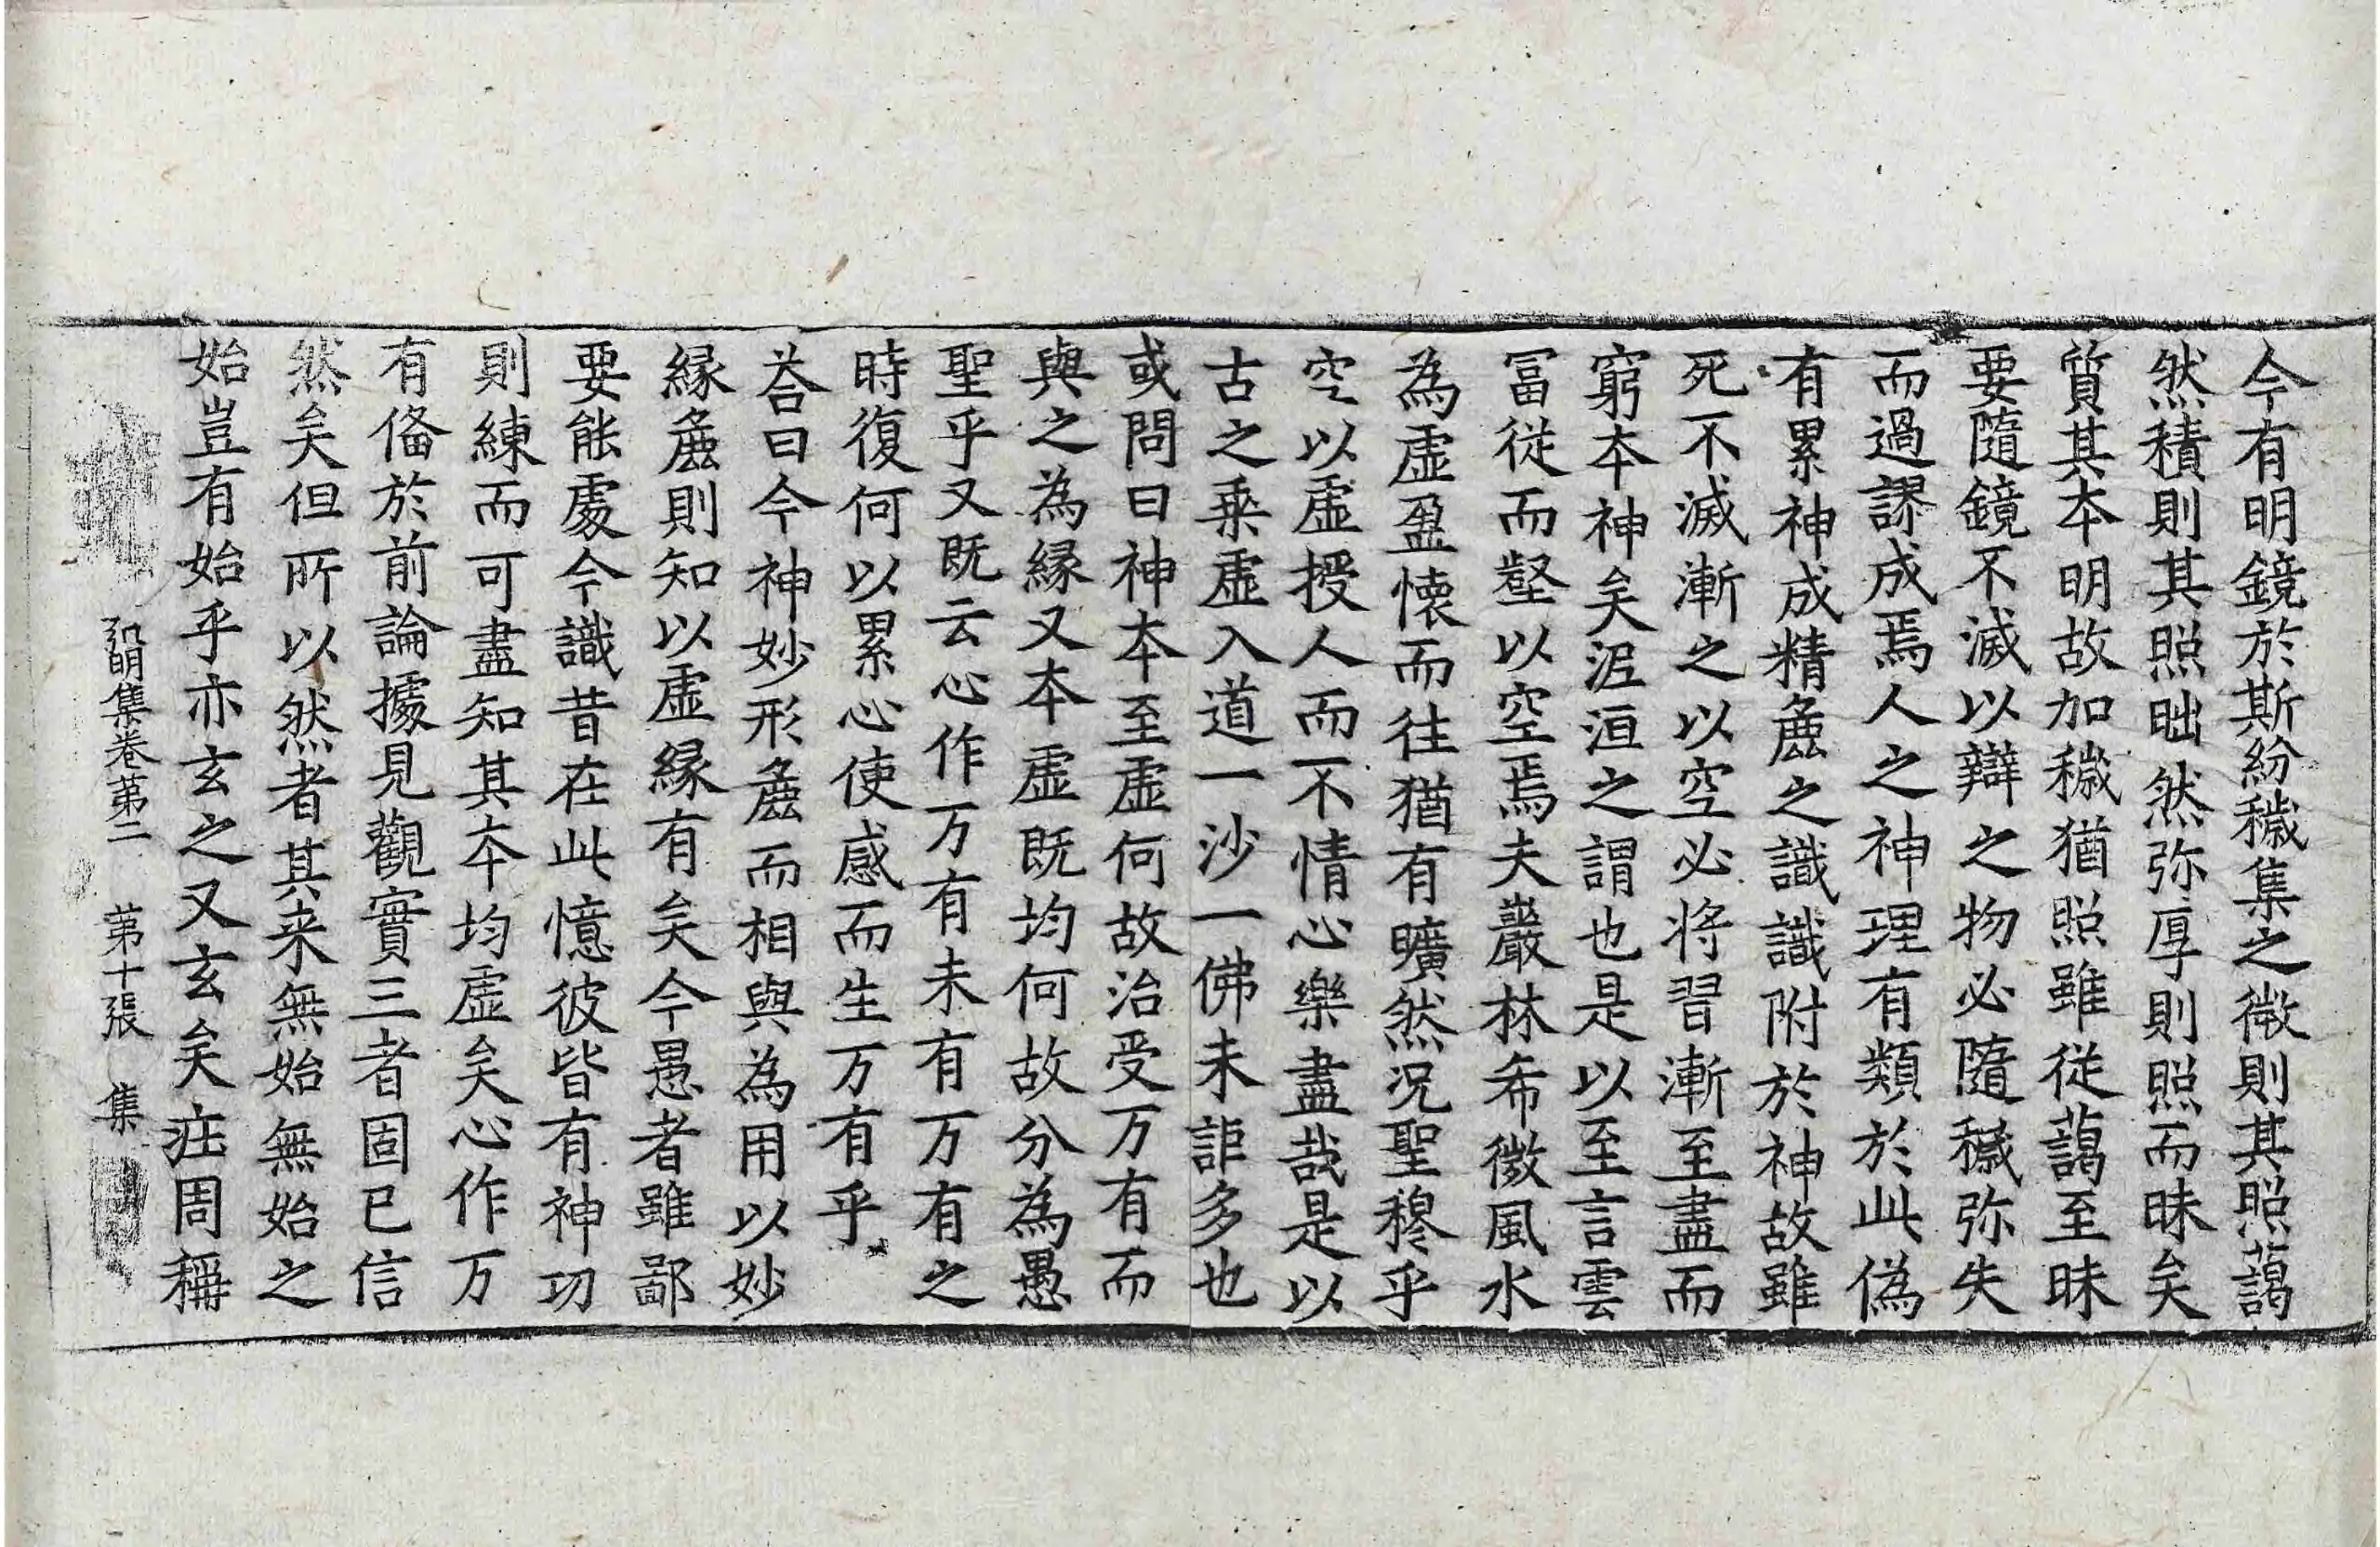 今有明鏡於斯紛穢集之微則其照藹
然積則其照朏然弥厚則照而昧矣
質其本明故加穢猶照雖從藹至昧
要隨鏡不滅以辯之物必隨穢弥失
而過謬成焉人之神理有類於此偽
有累神成精麁之識識附於神故雖
死不滅漸之以空必將習漸至盡而
窮本神矣泥洹之謂也是以至言雲
冨從而壑以空焉夫巖林希微風水
為虛盈懷而往猶有曠然況聖穆乎
空以虛授人而不情心樂盡哉是以
古之乗虛入道一沙一佛未詎多也
或問曰神本至虛何故沾受万有而
與之為縁又本虛既均何故分為愚
聖乎又既云心作万有未有万有之
時復何以累心使感而生万有乎
荅曰今神妙形麁而相與為用以妙
縁麁則知以虛縁有矣今愚者雖鄙
要能處今識昔在此憶彼皆有神功
則練而可盡知其本均虛矣心作万
有俻於前論據見觀實三者固已信
然矣但所以然者其来無始無始之
始豈有始乎亦玄之又玄矣庄周稱
弘明集卷第二 第十張 集